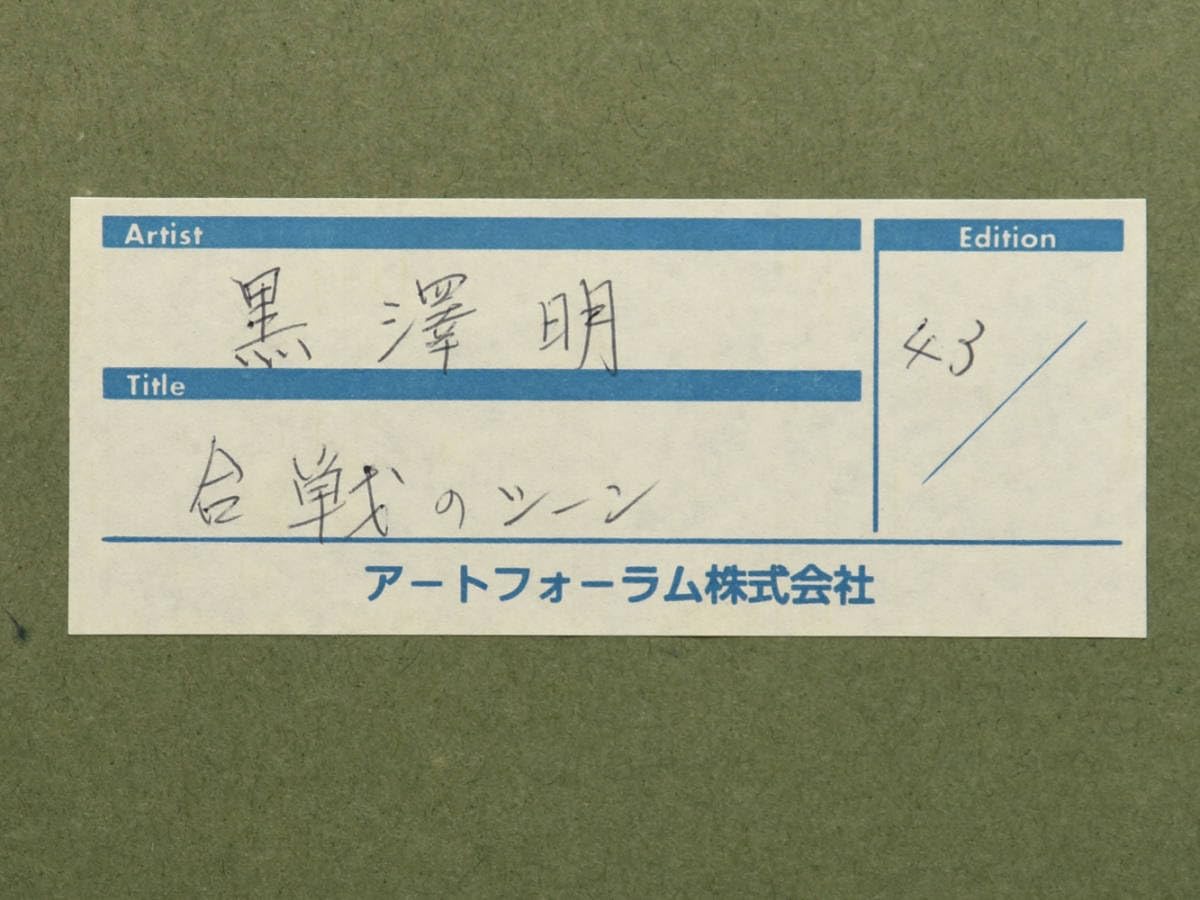 Artist
黒澤明
Edition
43/
Title
合戦のシーン
アートフォーラム株式会社